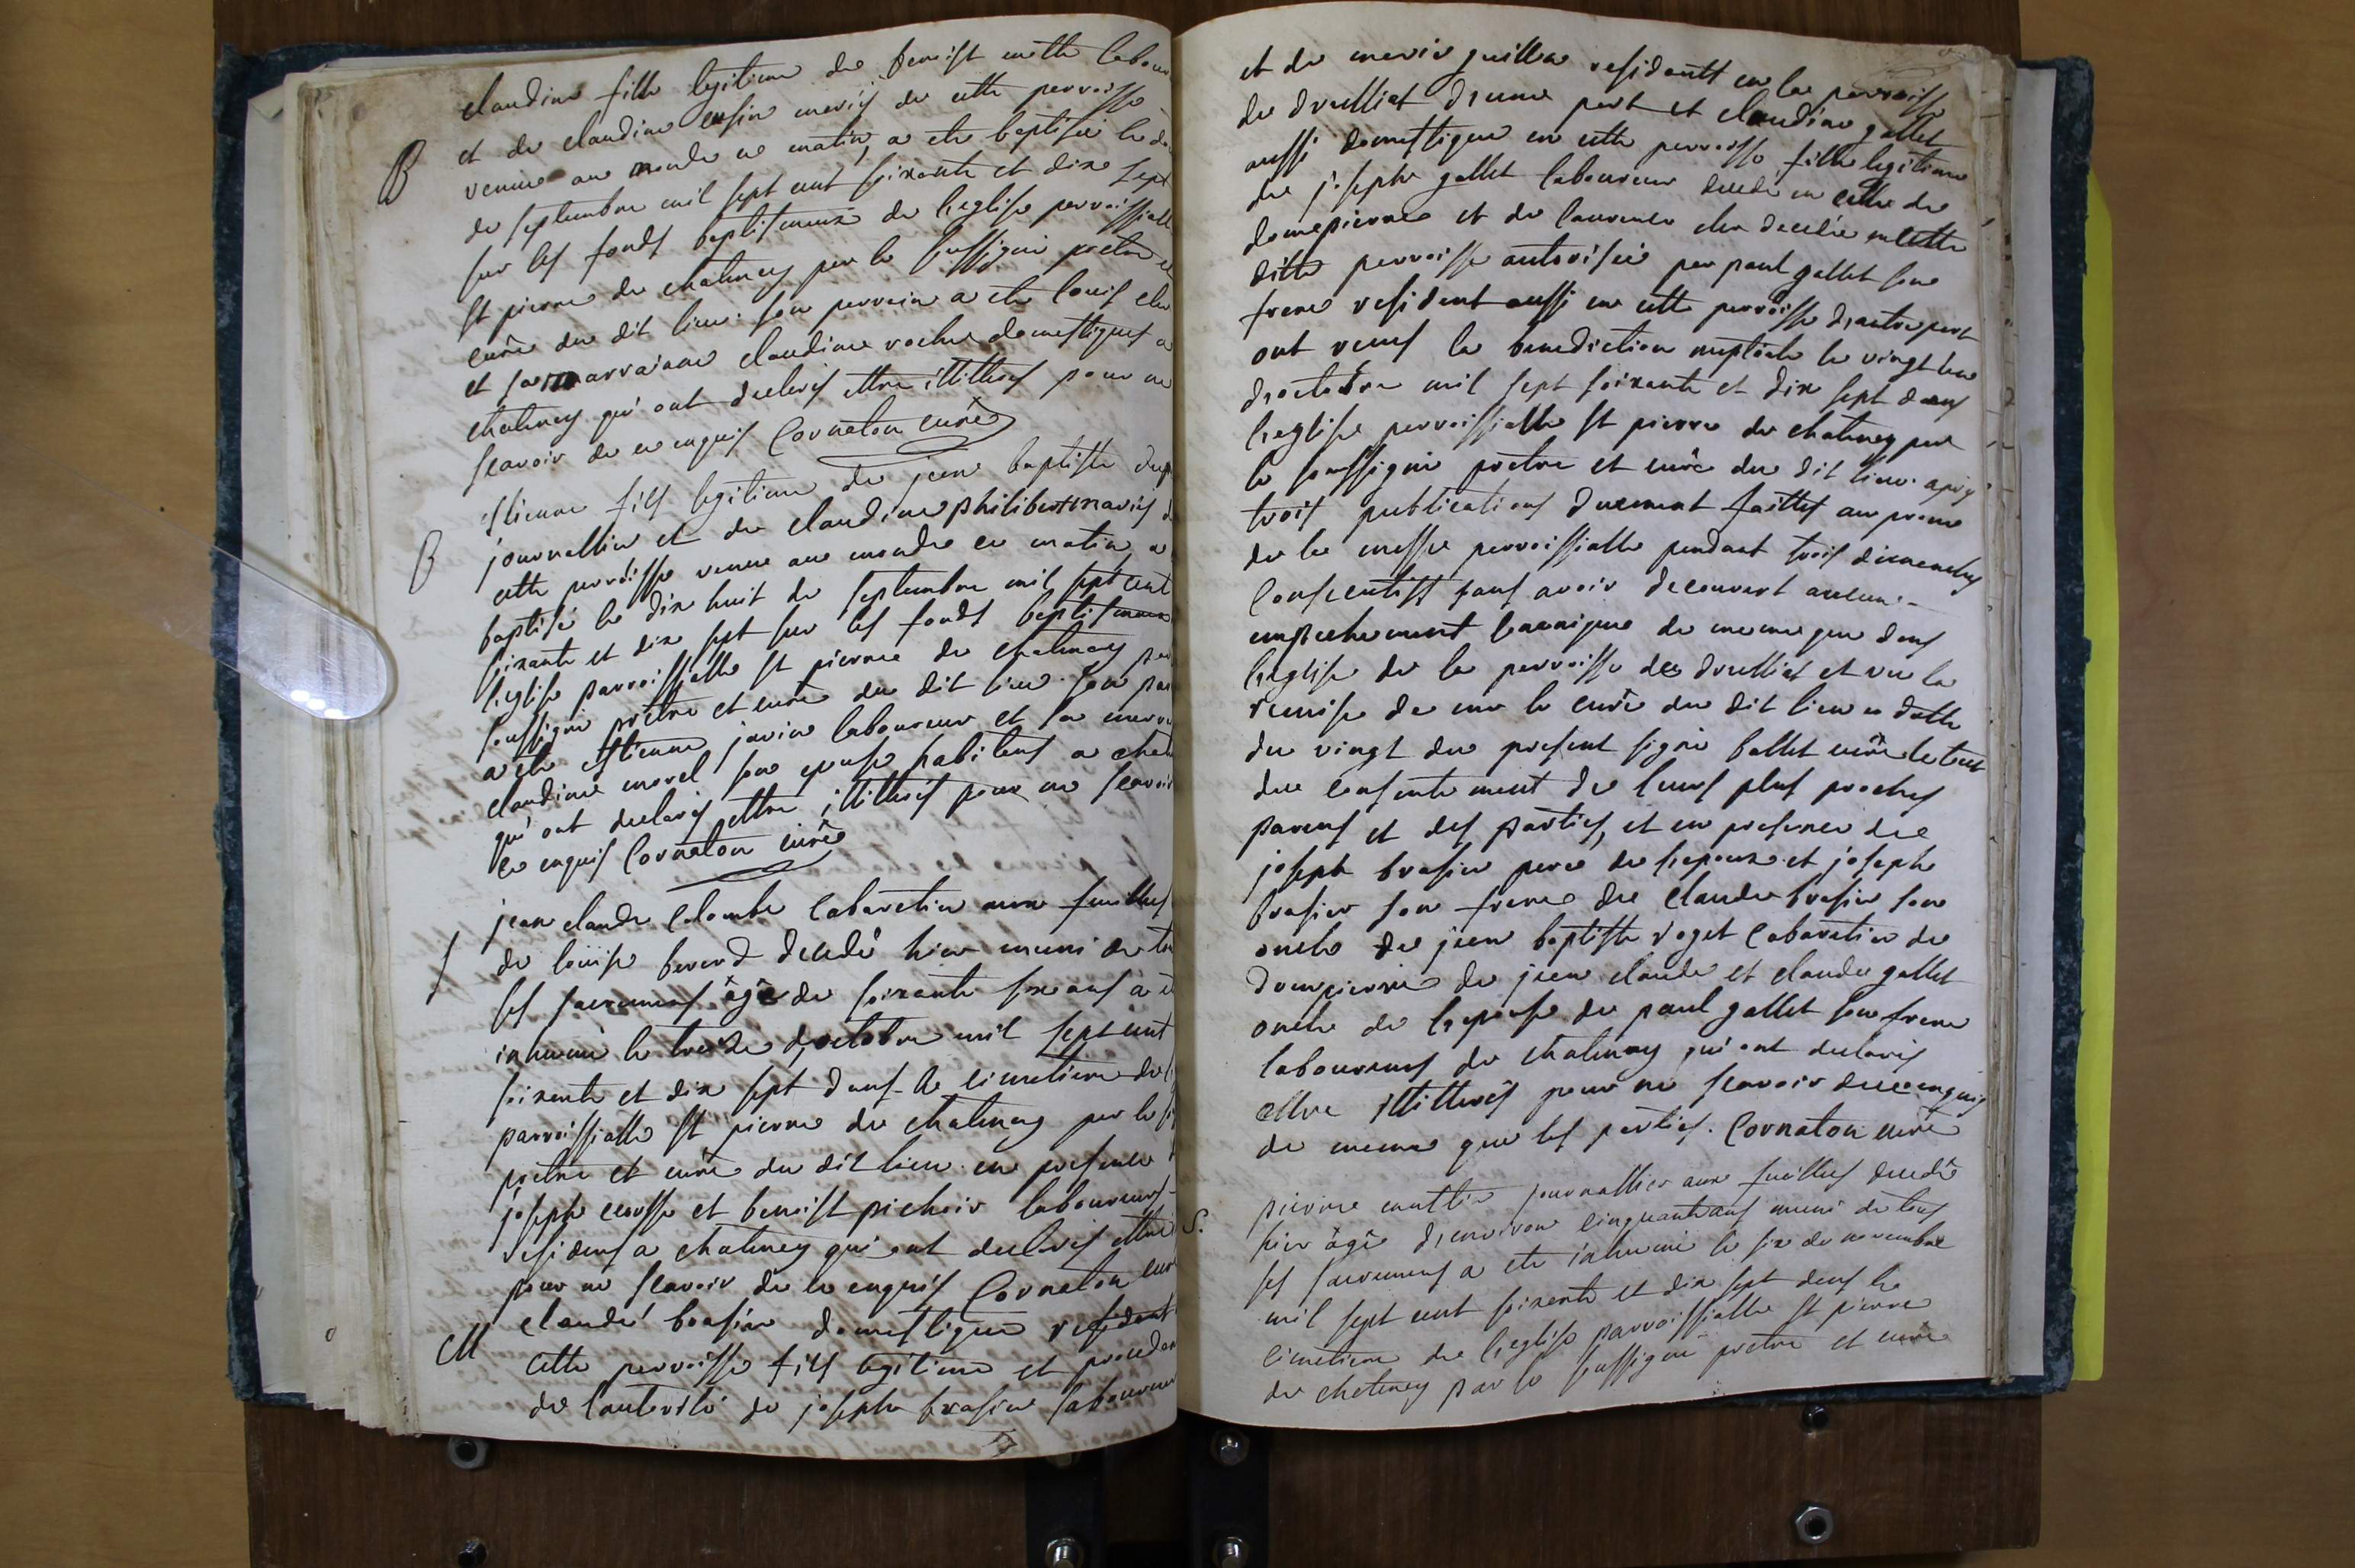 claudine fille legitime de benoist mette labour
B
et de claudine cusin mariés de cette parroisse
venue au monde ce matin, a ete baptisée le
de septembre mil sept cent soixante et dix sept
sur les fonds baptismaux de l'eglise parroissiall
st pierre de chatenay par le soussigné pretre et
curé du dit lieu. son parrain a ete louis
et sa marraine claudine roche domestiques a
chatenay qui ont declarés ettre illitterés pour ne
scavoir de ce enquis Cornaton curé
estienne fils legitime de jean baptiste
B
journallier et de claudine philibert mariés d
cette parroisse venue au monde ce matin, a
baptisé le dix huit de septembre mil sept cent
soixante et dix sept sur les fonds baptismaux
l'eglise parroissialle st pierre de chatenay par
soussigné prêtre et curé du dit lieu. son par
a ete estienne javin laboureur et sa marra
claudine morel son epouse habitens a chate
qui ont declarés ettre illitterés pour ne scavoir
ce enquis Cornaton curé
jean claude Colombe Cabaretier aux feuilles
S
de louise berard decedé hier muni de to
ses sacremens âgé de soixante six ans a é
inhumé le treize d'octobre mil sept cent
soixante et dix sept dans le cimetiere de l
parroissialle st pierre de chatenay par le
prêtre et curé du dit lieu en presence
joseph cousse et benoist pichoir laboureurs
residens a chatenay qui ont declarés ettre
pour ne scavoir de ce enquis Cornaton cur
M
claude brasier domestique residant
cette parroisse fils legitime et proceden
de l'autorité de joseph brasier laboureur
et de marie guillin residents en la parroisse
de druilliat d'une part et claudine gallet
aussi domestique en cette parroisse fille legitime
de joseph gallet laboureur decedé en celle de
dompierre et de laurence decedée en cette
ditte parroisse autorisée par paul gallet son
frere resident aussi en cette parroisse d'autre part
ont reçus la benediction nuptiale le vingt un
d'octobre mil sept soixante et dix sept dans
l'eglise parroissialle st pierre de chatenay par
le soussigné pretre et curé du dit lieu. après
trois publications duement faittes au prone
de la messe parroissialle pendant trois dimenches
Consecutifs sans avoir decouvert aucun
empechement Canonique de meme que dans
l'eglise de la parroisse de druilliat et vu la
remise de mr le curé du dit lieu en datte
du vingt du present signé ballet curé le tout
du consentement de leurs plus proches
parens et des parties, et en presence de
joseph brasier pere de l'epoux et joseph
brasier son frere de claude brasier son
oncle de jean baptiste roget Cabaretier de
dompierre de jean claude et claude gallet
oncle de l'epouse de paul gallet son frere
laboureurs de chatenay qui ont declarés
ettre illitterés pour ne scavoir de ce enquis
de meme que les parties. Cornaton curé
S.
pierre mottin journallier aux feuilles decedé
hier âgé d'environ cinquante ans muni de tous
ses sacremens a ete inhumé le six de novembre
mil sept cent soixante et dix sept dans le
cimetiere de l'eglise parroissialle st pierre
de chatenay par le soussigné pretre et curé